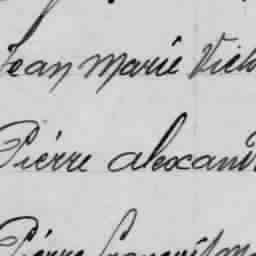 Jean Marie Vict
Pierre alexand
Pierre